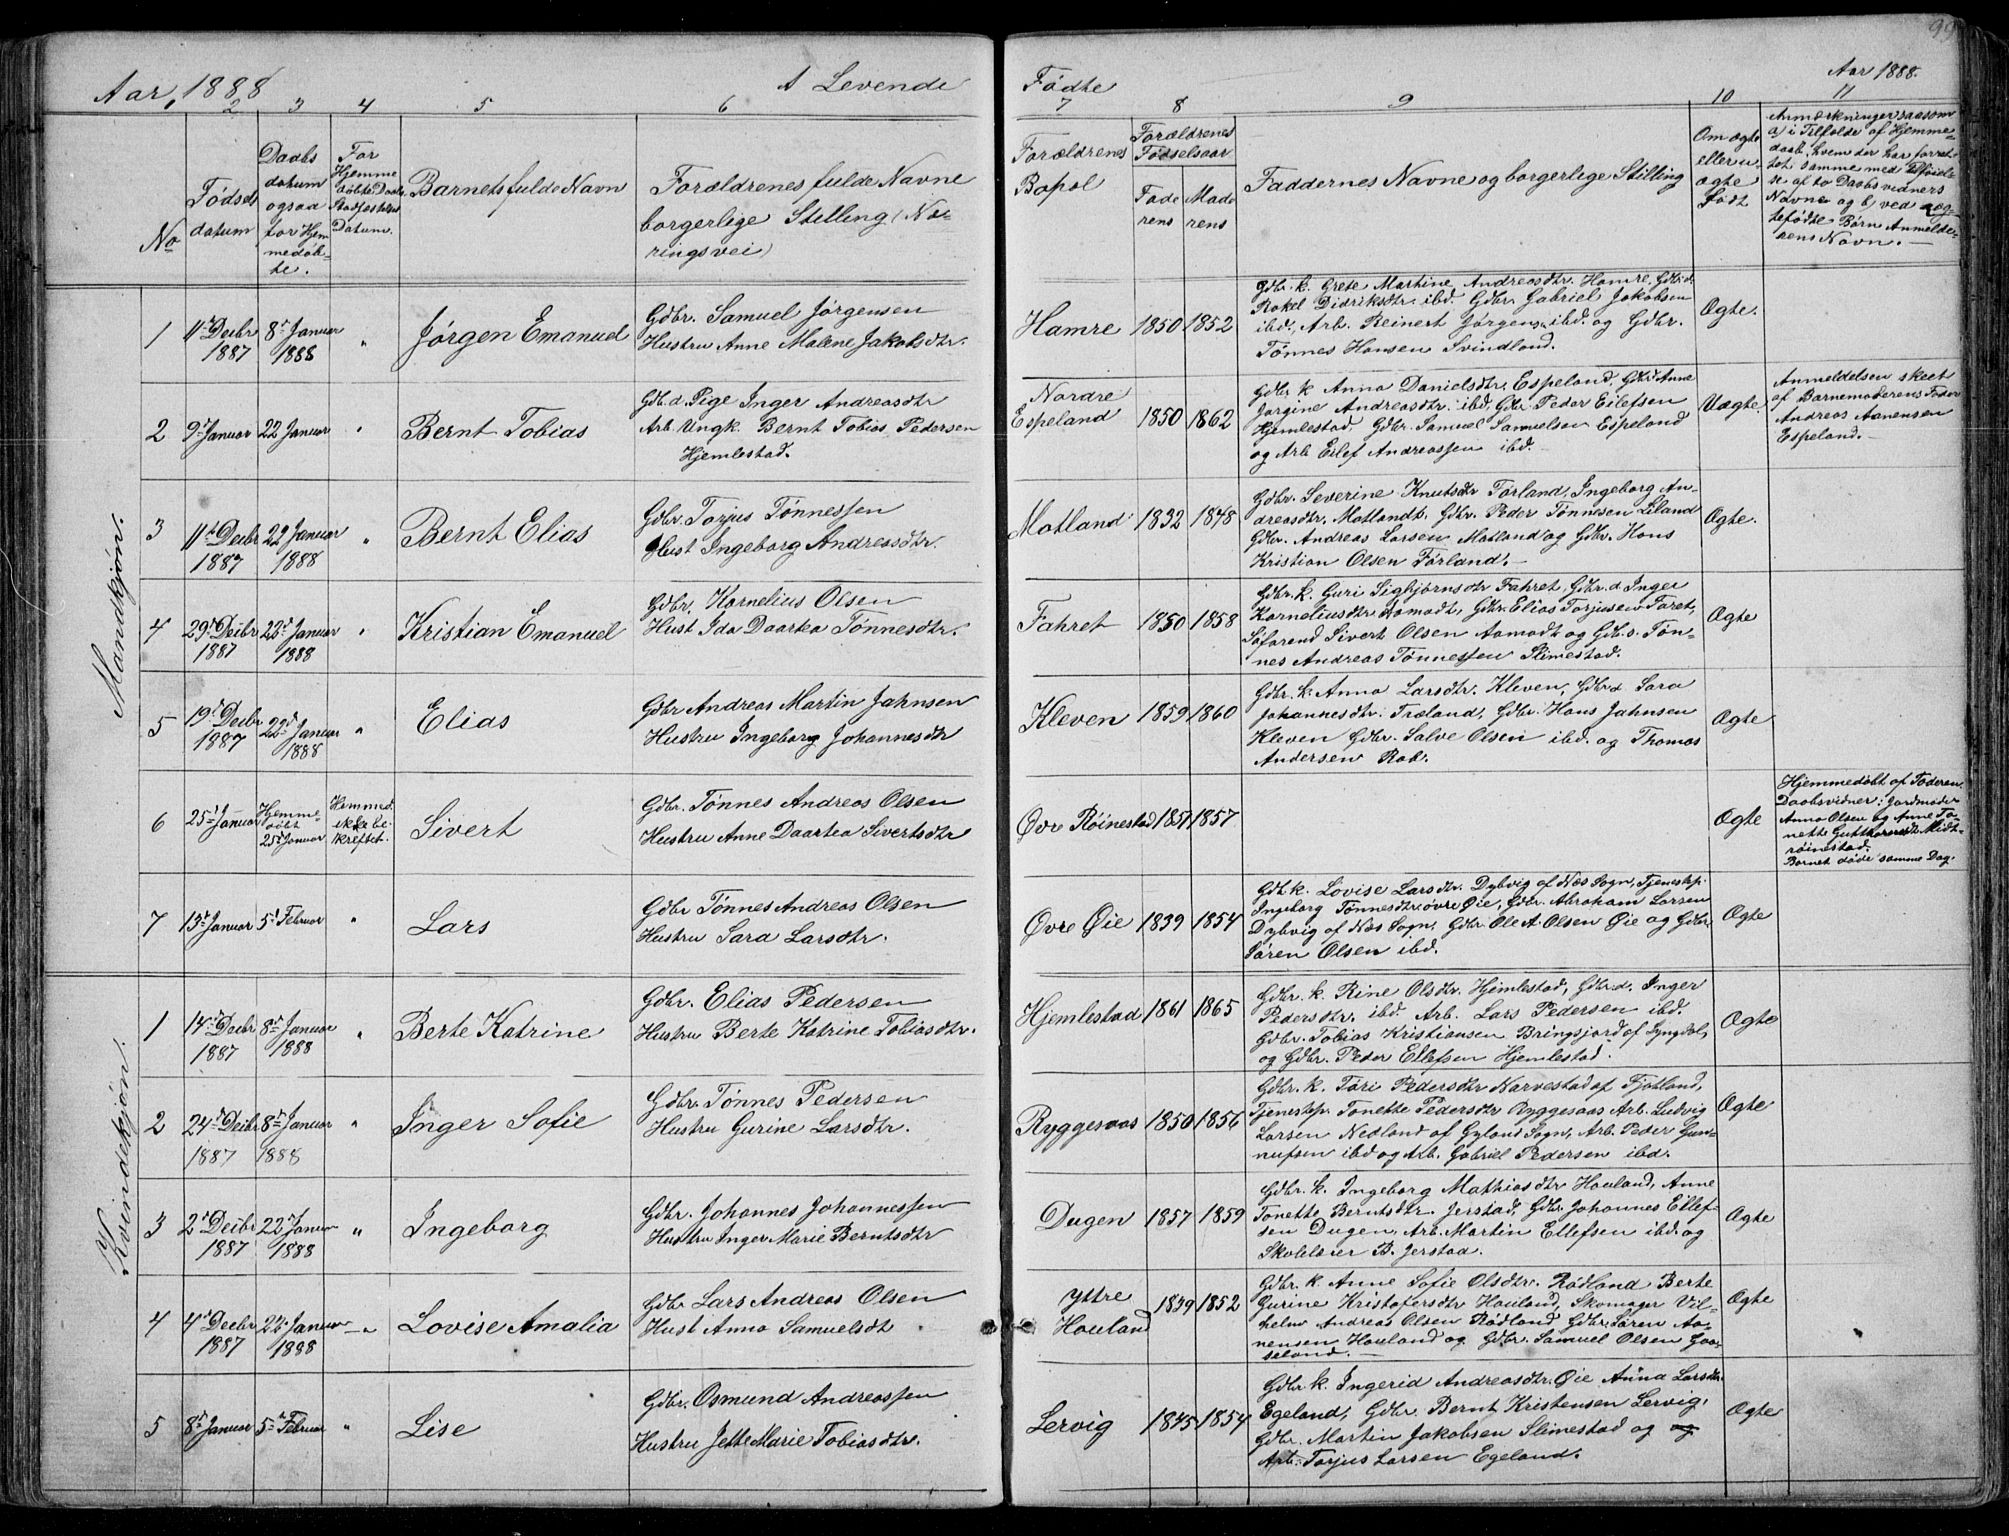 99
Aar, 1888
A Levende
Fødte
Aar 1888.
2 3 4 5 6 7 8 9 10 11
No
Fødsels
datum
Daabs
datum
ogsaa
for Hjem
medøb-
te.
For
Hjemme
døbte Daabs
Stadfæstelses
Datum.
Barnets fulde Navn
Forældrenes fulde Navne
borgerlige Stilling (Næ-
ringsvei)
Forældrenes
Bopæl
Forældrenes
Fødselsaar
Fade
rens
Mode
rens
Faddernes Navne og borgerlige Stilling
Om ægte
eller u
ægte
Født
Anmærkninger saasom
a) i Tilfælde af Hjemme-
daab, hvem der har forret-
tet samme med Tilføiel-
se af to Daabsvidners
Navne og b) ved uæg-
tefødte Børn Anmelde-
rens Navn.
Mandkjøn.
1
11te Decbr
1887
8de Januar
1888
"
Jørgen Emanuel
Gdbr. Samuel Jørgensen
Hustru Anne Malene Jakobsdtr.
Hamre
1850
1852
Gdbr. k. Grete Martine Andreasdtr. Hamre, Gdbr. d.
Rakel Didriksdtr. ibd. Gdbr. Gabriel Jakobsen
ibd., Arb. Reinert Jørgens. ibd. og Gdbr.
Tønnes Hansen Svindland.
Ægte.
2
9de Januar
22 Januar
"
Bernt Tobias
Gdb. d. Pige Inger Andreasdtr
Arb. Ungk. Bernt Tobias Pedersen
Hjemlestad.
Nordre
Espeland
1850
1862
Gdbr. k Anna Danielsdtr. Espeland, Gdbr. Anne
Jorgine Andreasdtr. ibd, Gdbr. Peder Eilefsen
Hjemlestad. Gdbr. Samuel Samuelsen Espeland
og Arb Eilef Andreassen ibd.
Uægte.
Anmeldelsen skeet
af Barnemoderens Fader
Andreas Aanensen
Espeland.
3
11te Decbr
1887
22 Januar
1888
"
Bernt Elias
Gdbr. Torjus Tønnessen
Hust Ingeborg Andreasdtr.
Motland
1832
1848
Gdbr. Severine Knutsdtr Førland, Ingeborg An-
dreasdtr. Motland. Gdbr. Peder Tønnesen Liland
Gdbr. Andreas Larsen Motland og Gdbr. Hans
Kristian Olsen Førland.
Ægte.
4
29de Decbr
1887
22de Januar
1888
"
Kristian Emanuel
Gdbr. Kornelius Olsen
Hust Ida Daartea Tønnesdtr.
Fahret
1850
1858
Gdbr. k. Guri Sigbjørnsdtr Fahret, Gdbr. d. Inger
Korneliusdtr. Aamodt, Gdbr. Elias Torjusen Faret,
Søfarend Sivert Olsen Aamodt og Gdb. s. Tøn-
nes Andreas Tønnessen Slimestad.
Ægte
5
19de Decbr
1887
22de Januar
1888
"
Elias
Gdbr Andreas Martin Jahnsen
Hustru Ingeborg Johannesdtr
Kleven
1859
1860
Gdbr. k. Anna Larsdtr. Kleven, Gdbr. d Sara
Johannesdtr. Træland, Gdbr. Hans Jahnsen
Kleven Gdbr. Salve Olsen ibd. og Thomas
Andersen Rob.
Ægte
6
25de Januar
Hjemme
døbt
25de Januar
Hjemmed.
ikke be-
kræftet.
Sivert
Gdbr. Tønnes Andreas Olsen
Hustru Anne Daartea Sivertsdtr
Øvre Røinestad
1851
1857
Ægte
Hjemmedøbt af Faderen
Daabsvidner: Jordmoder
Anna Olsen og Anne To-
nette Guttormsdtr Midt-
røinestad.
Barnet døde samme Dag.
7
13de Januar
5te Februar
"
Lars
Gdbr Tønnes Andreas Olsen
Hustru Sara Larsdtr.
Øvre Øie
1839
1854
Gdb. k. Lovise Larsdtr. Dybvig af Næs Sogn, Tjenestep.
Ingeborg Tønnesdtr. øvre Øie, Gdbr. Abraham Larsen
Dybvig af Næs Sogn, Gdbr Ole A. Olsen Øie og Gdbr.
Søren Olsen ibd.
Ægte
Kvindekjøn.
1
14de Decbr
1887
8de Januar
1888
"
Berte Katrine
Gdbr. Elias Pedersen
Hustru Berte Katrine Tobiasdtr.
Hjemlestad
1861
1865
Gdbr. k. Rine Olsdtr. Hjemlestad, Gdbr. d. Inger
Pedersdtr. ibd. Arb. Lars Pedersen ibd.
Gdbr. Tobias Kristiansen Bringsjord af Lyngdal,
og Gdbr. Peder Ellefsen Hjemlestad.
Ægte
2
24de Decbr
1887
8de Januar
1888
"
Inger Sofie
Gdbr. Tønnes Pedersen
Hustru Gurine Larsdtr.
Ryggesaas
1850
1856
Gdbr. k. Tori Pedersdtr Narvestad af Fjotland,
Tjenestep. Tonette Pedersdtr Ryggesaas Arb. Ludvig
Larsen Nedland af Gyland Sogn, Arb. Peder Gun-
nufsen ibd og Arb. Gabriel Pedersen ibd.
Ægte
3
2de Decbr
1887
22de Januar
1888
"
Ingeborg
Gdbr. Johannes Johannessen
Hustru Inger Marie Berntsdtr
Dugen
1857
1859
Gdbr. k. Ingeborg Mathiasdtr Houland, Anne
Tonette Berntsdtr. Jerstad, Gdbr. Johannes Ellef-
sen Dugen, Arb. Martin Ellefsen ibd. og
Skolelærer B. Jerstad.
Ægte
4
4de Decbr
1887
22de Januar
1888
"
Lovise Amalia
Gdbr Lars Andreas Olsen
Hust Anna Samuelsdt
Yttre
Houland
1839
1852
Gdbr. k. Anne Sofie Olsdtr. Rødland Berte
Gurine Kristofersdtr Houland, Skomager Vil-
helm Andreas Olsen Rødland, Gdbr. Søren Aa-
nensen Houland og Gdbr. Samuel Olsen Gaa-
seland.
Ægte
5
8de Januar
5te Februar
"
Lise
Gdbr. Osmund Andreassen
Hustru Jette Marie Tobiasdtr.
Lervig
1845
1854
Gdbr k. Ingerid Andreasdtr. Øie Anna Larsdtr.
Egeland, Gdbr. Bernt Kristensen Lervig,
Gdbr. Martin Jakobsen Slimestad og og
Arb. Torjus Larsen Egeland.
Ægte